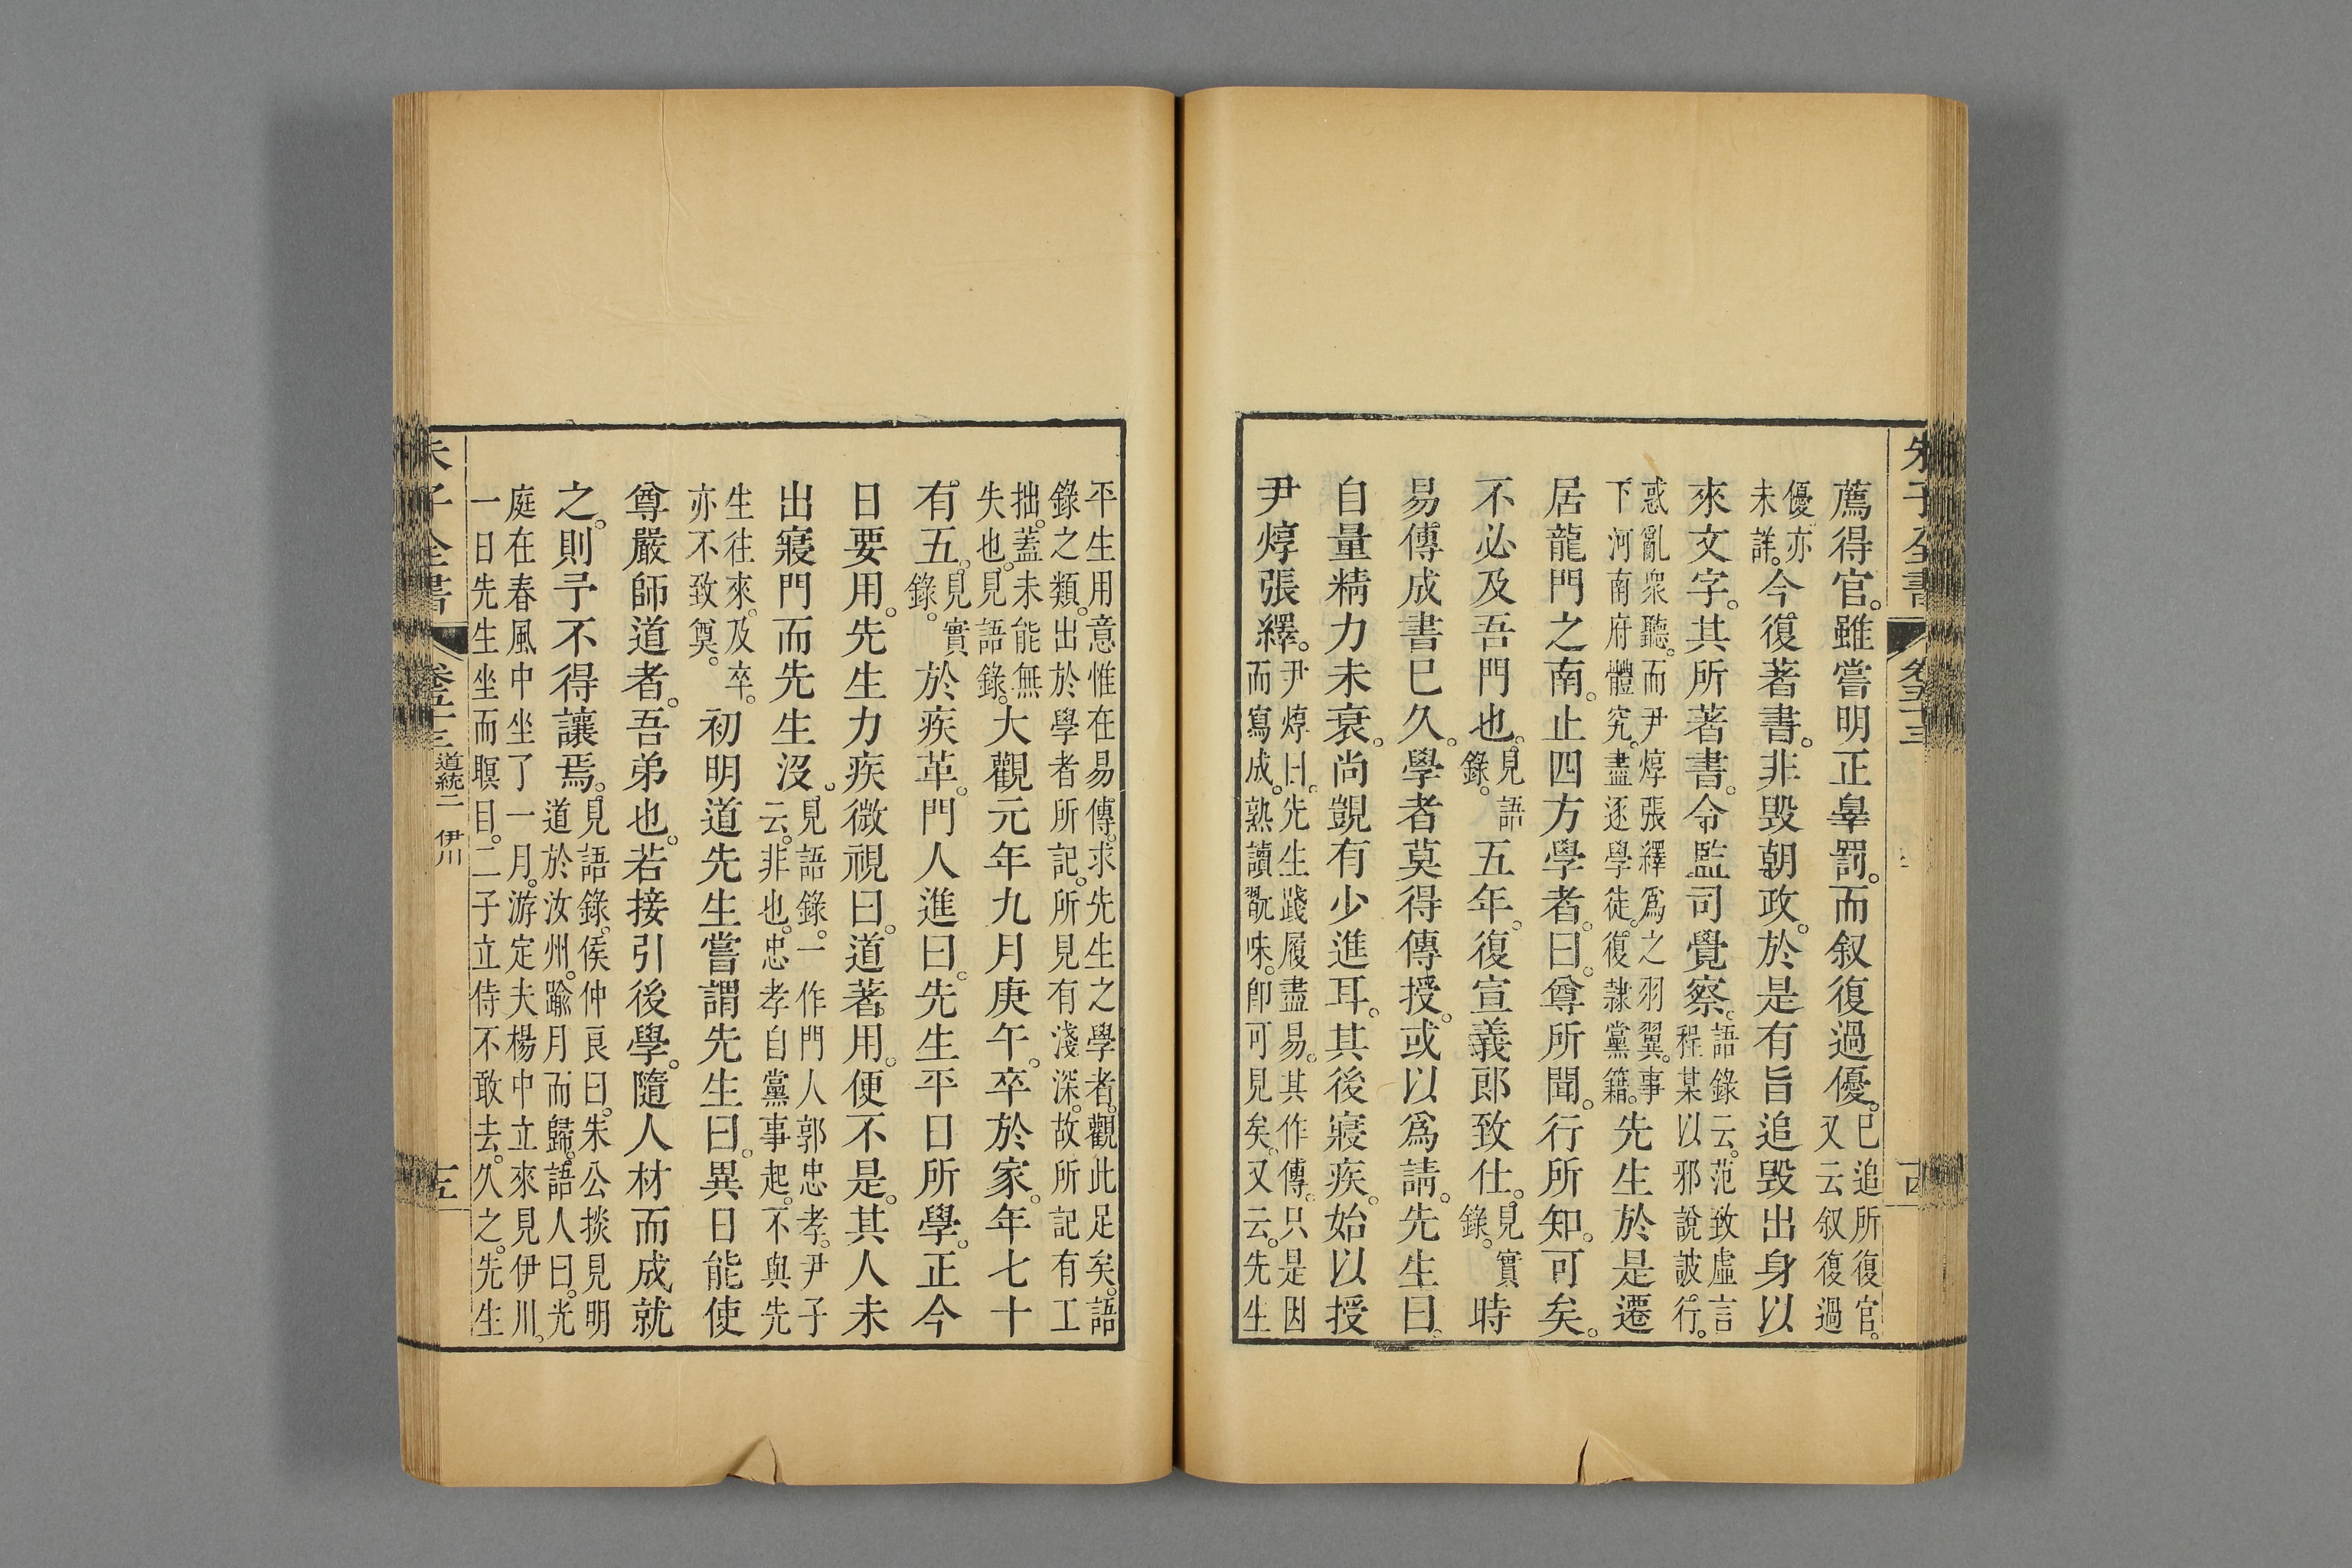 朱子全書
卷五十三
薦得官。雖嘗明正辠罰。而叙復過優。已追所復官。又云叙復過
優亦未詳。今復著書。非毀朝政。於是有旨追毀出身以
來文字。其所著書。令監司覺察。語錄云。范致虛言程某以邪說詖行。
惑亂衆聽。而尹焞張繹爲之羽翼。事下河南府體究。盡逐學徒。復隷黨籍。先生於是遷
居龍門之南。止四方學者。曰。尊所聞。行所知。可矣。
不必及吾門也。見語錄。五年。復宣義郎致仕。見實錄。時
易傳成書已久。學者莫得傳授。或以爲請。先生曰。
自量精力未衰。尚覬有少進耳。其後寢疾。始以授
尹焞張繹。尹焞曰。先生踐履盡易。其作傳。只是因而寫成。熟讀翫味。即可見矣。又云。先生
平生用意惟在易傳。求先生之學者。觀此足矣。語錄之類。出於學者所記。所見有淺深。故所記有工
拙。蓋未能無失也。見語錄。大觀元年九月庚午。卒於家。年七十
有五。見實錄。於疾革。門人進曰。先生平日所學。正今
日要用。先生力疾微視曰。道著用。便不是。其人未
出寢門而先生沒。見語錄。一作門人郭忠孝。尹子云。非也。忠孝自黨事起。不與先
生往來。及卒。亦不致奠。初明道先生嘗謂先生曰。異日能使
尊嚴師道者。吾弟也。若接引後學。隨人材而成就
之。則予不得讓焉。見語錄。侯仲良曰。朱公掞見明道於汝州。踰月而歸。語人曰。光
庭在春風中坐了一月。游定夫楊中立來見伊川。一日先生坐而瞑目。二子立侍不敢去。久之。先生
朱子全書
卷五十三
道統二
伊川